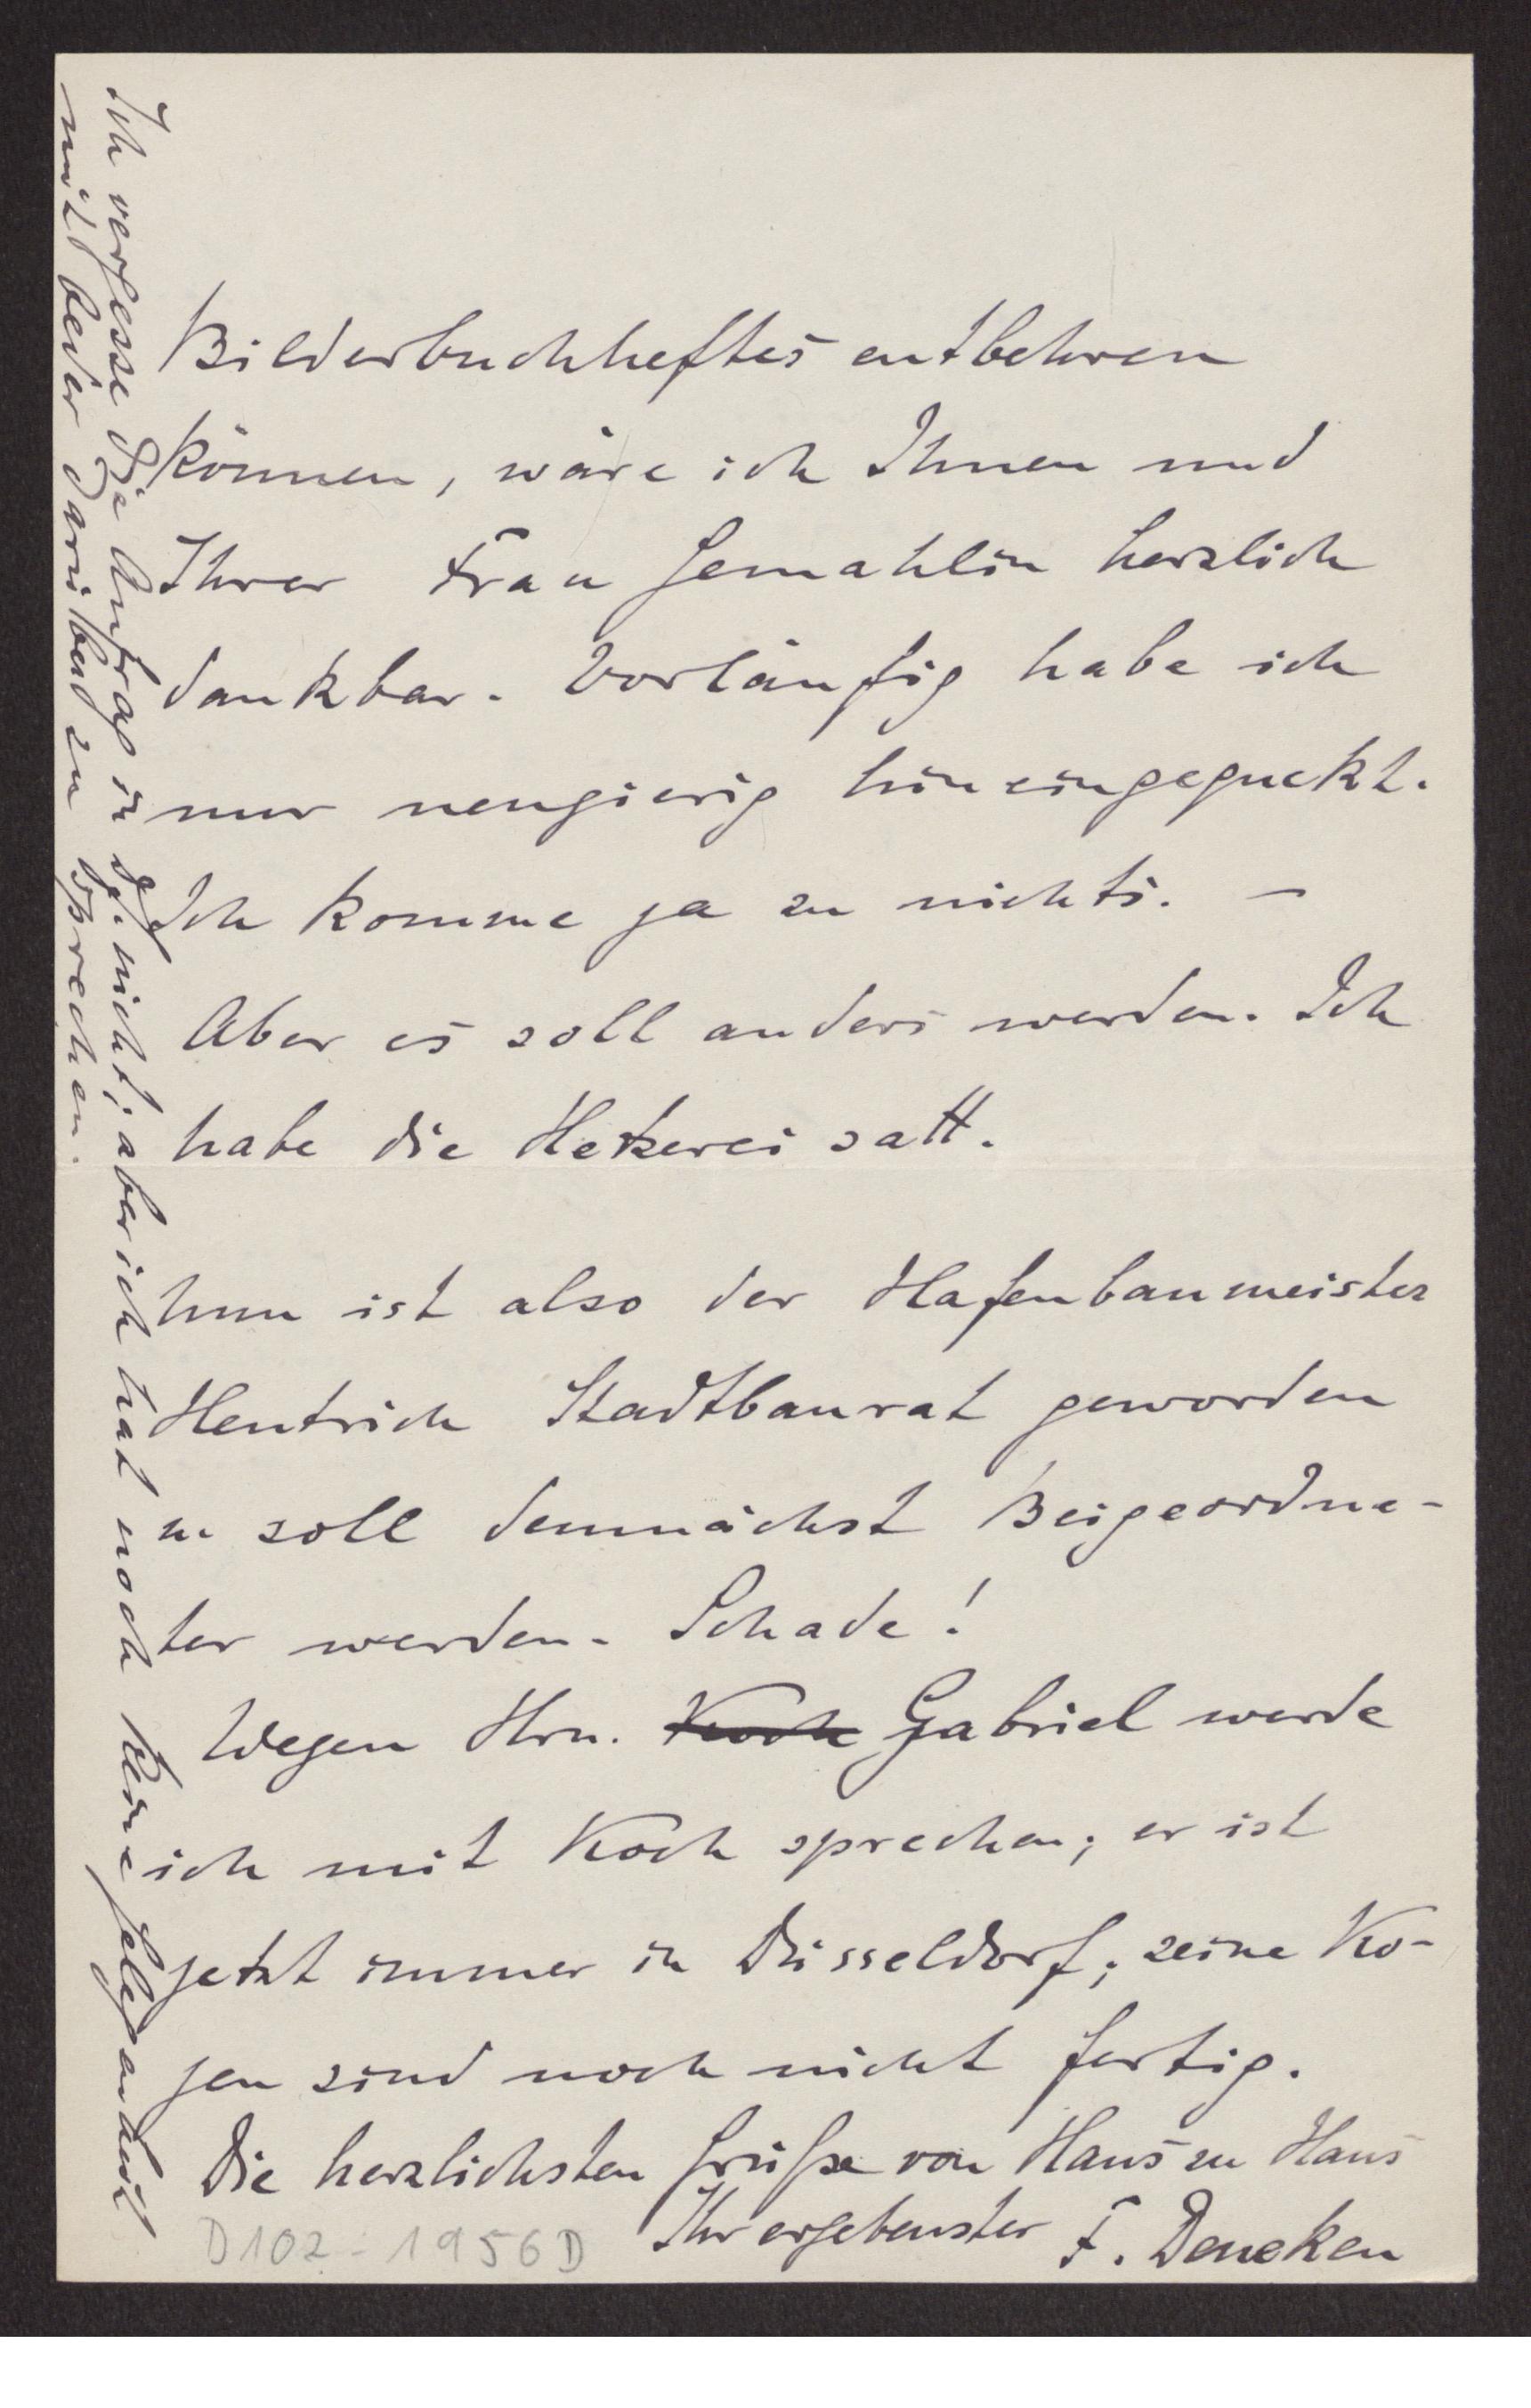 Bilderbuchheftes entbehren
können, wäre ich Ihnen und
Ihrer Frau Gemahlin herzlich
dankbar. Vorläufig habe ich
nur neugierig hineingeguckt.
Ich komme ja zu nichts. –
Aber es soll anders werden. Ich
habe die Hetzerei satt.
Nun ist also der Hafenbaumeister
Hentrich Stadtbaurat geworden
u. soll demnächst Beigeordne-
ter werden. Schade!
Wegen Hrn. Koch Gabriel werde
ich mit Koch sprechen; er ist
jetzt immer in Düsseldorf; seine Ko-
jen sind noch nicht fertig.
Die herzlichsten Grüße von Haus zu Haus
Ihr ergebenster F. Deneken
D102-1956D
Ich vergesse die Anfrage in gg. nicht; aber ich hat noch keine Gelegenheit
mit beder darüber zu sprechen.